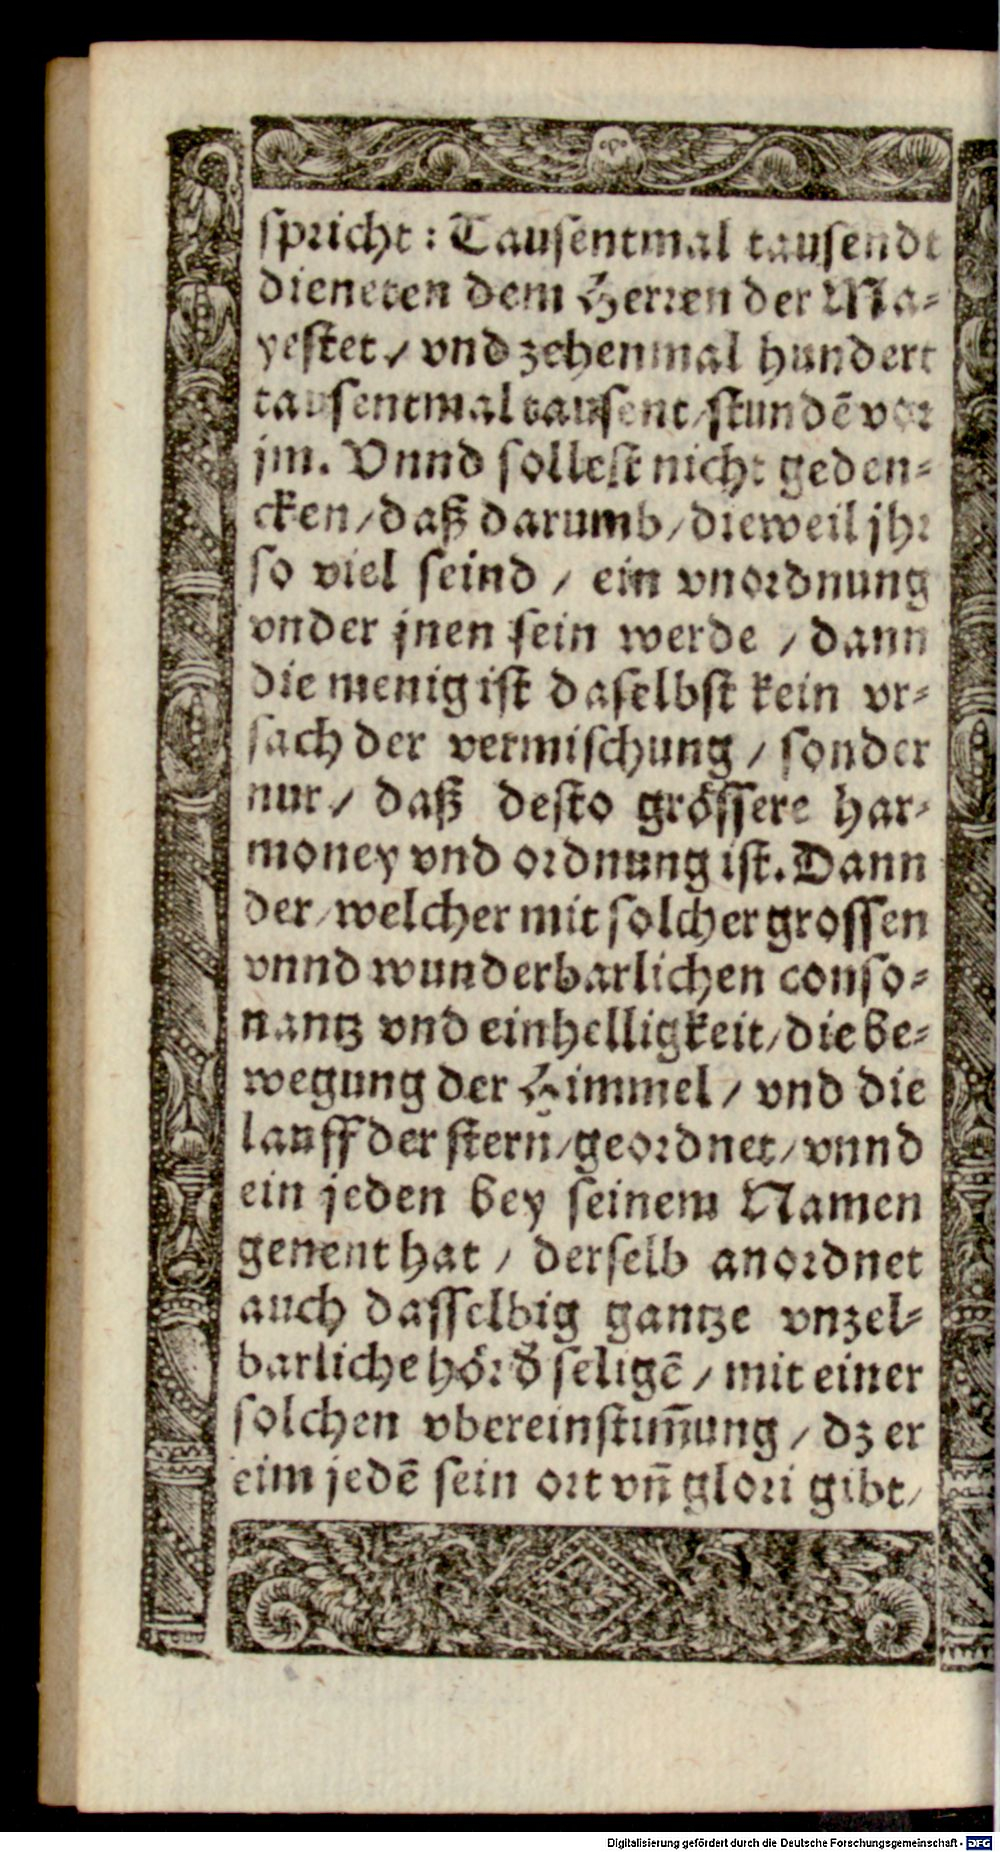 spricht: Tausentmal tausendt
dieneten dem Herren der Ma-
yestet / vnd zehenmal hundert
tausentmal tausent / stundē vor
jm. Vnnd sollest nicht geden-
cken / daß darumb / dieweil jhr
so viel seind / ein vnordnung
vnder jnen sein werde / dann
die menig ist daselbst kein vr-
sach der vermischung / sonder
nur / daß desto grössere har-
money vnd ordnung ist. Dann
der / welcher mit solcher grossen
vnnd wunderbarlichen conso-
nantz vnd einhelligkeit / die be-
wegung der Himmel / vnd die
lauff der stern / geordnet / vnnd
ein jeden bey seinem Namen
genent hat / derselb anordnet
auch dasselbig gantze vnzel-
barliche hör d̄ seligē / mit einer
solchen vbereinstim̄ung / dz er
eim jedē sein ort vn̄ glori gibt /
Digitalisierung gefördert durch die Deutsche Forschungsgemeinschaft - DFG